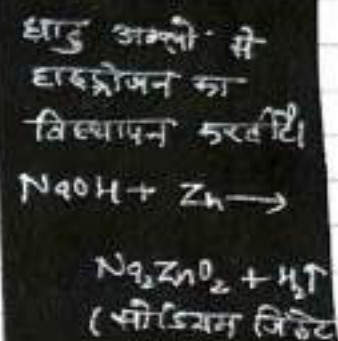 धातु अम्लो से
हाइड्रोजन का
विस्थापन करती है।
NaOH + Zn →
Na₂ZnO₂ + H₂↑
(सोडियम जिंकेट